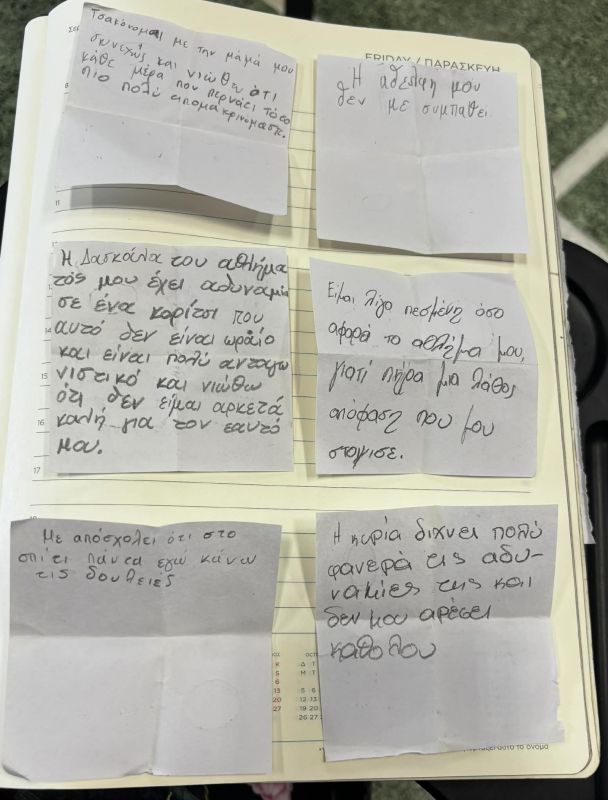 Τσακόνομαι με την μάμά μου
συνεχώς και νιώθω ότι
κάθε μέρα που περνάει τόσο
πιο πολύ απομακρινόμαστε.
FRIDAY / ΠΑΡΑΣΚΕΥΗ
Η άδελφη μου
δεν με συμπαθει
Η Δασκάλα του αθλήμα
τός μου έχει αδυναμία
σε ένα κορίτσι που
αυτό δεν είναι ωραίο
και είναι πολύ ανταγω
νιστικό και νιώθω
ότι δεν είμαι αρκετά
καλή για τον εαυτό
μου.
Είμαι λίγο πεσμένη όσο
αφορά το αθλήμα μου,
γιατί πήρα μια λάθος
απόφαση που μου
στοίχισε.
11
15
16
17
Με απόσχολει ότι στο
σπίτι πάντα εγώ κάνω
τις δουλειες
Η κυρία διχνει πολύ
φανερά τις αδυ-
ναμίες της και
δεν μου αρέσει
καθολου